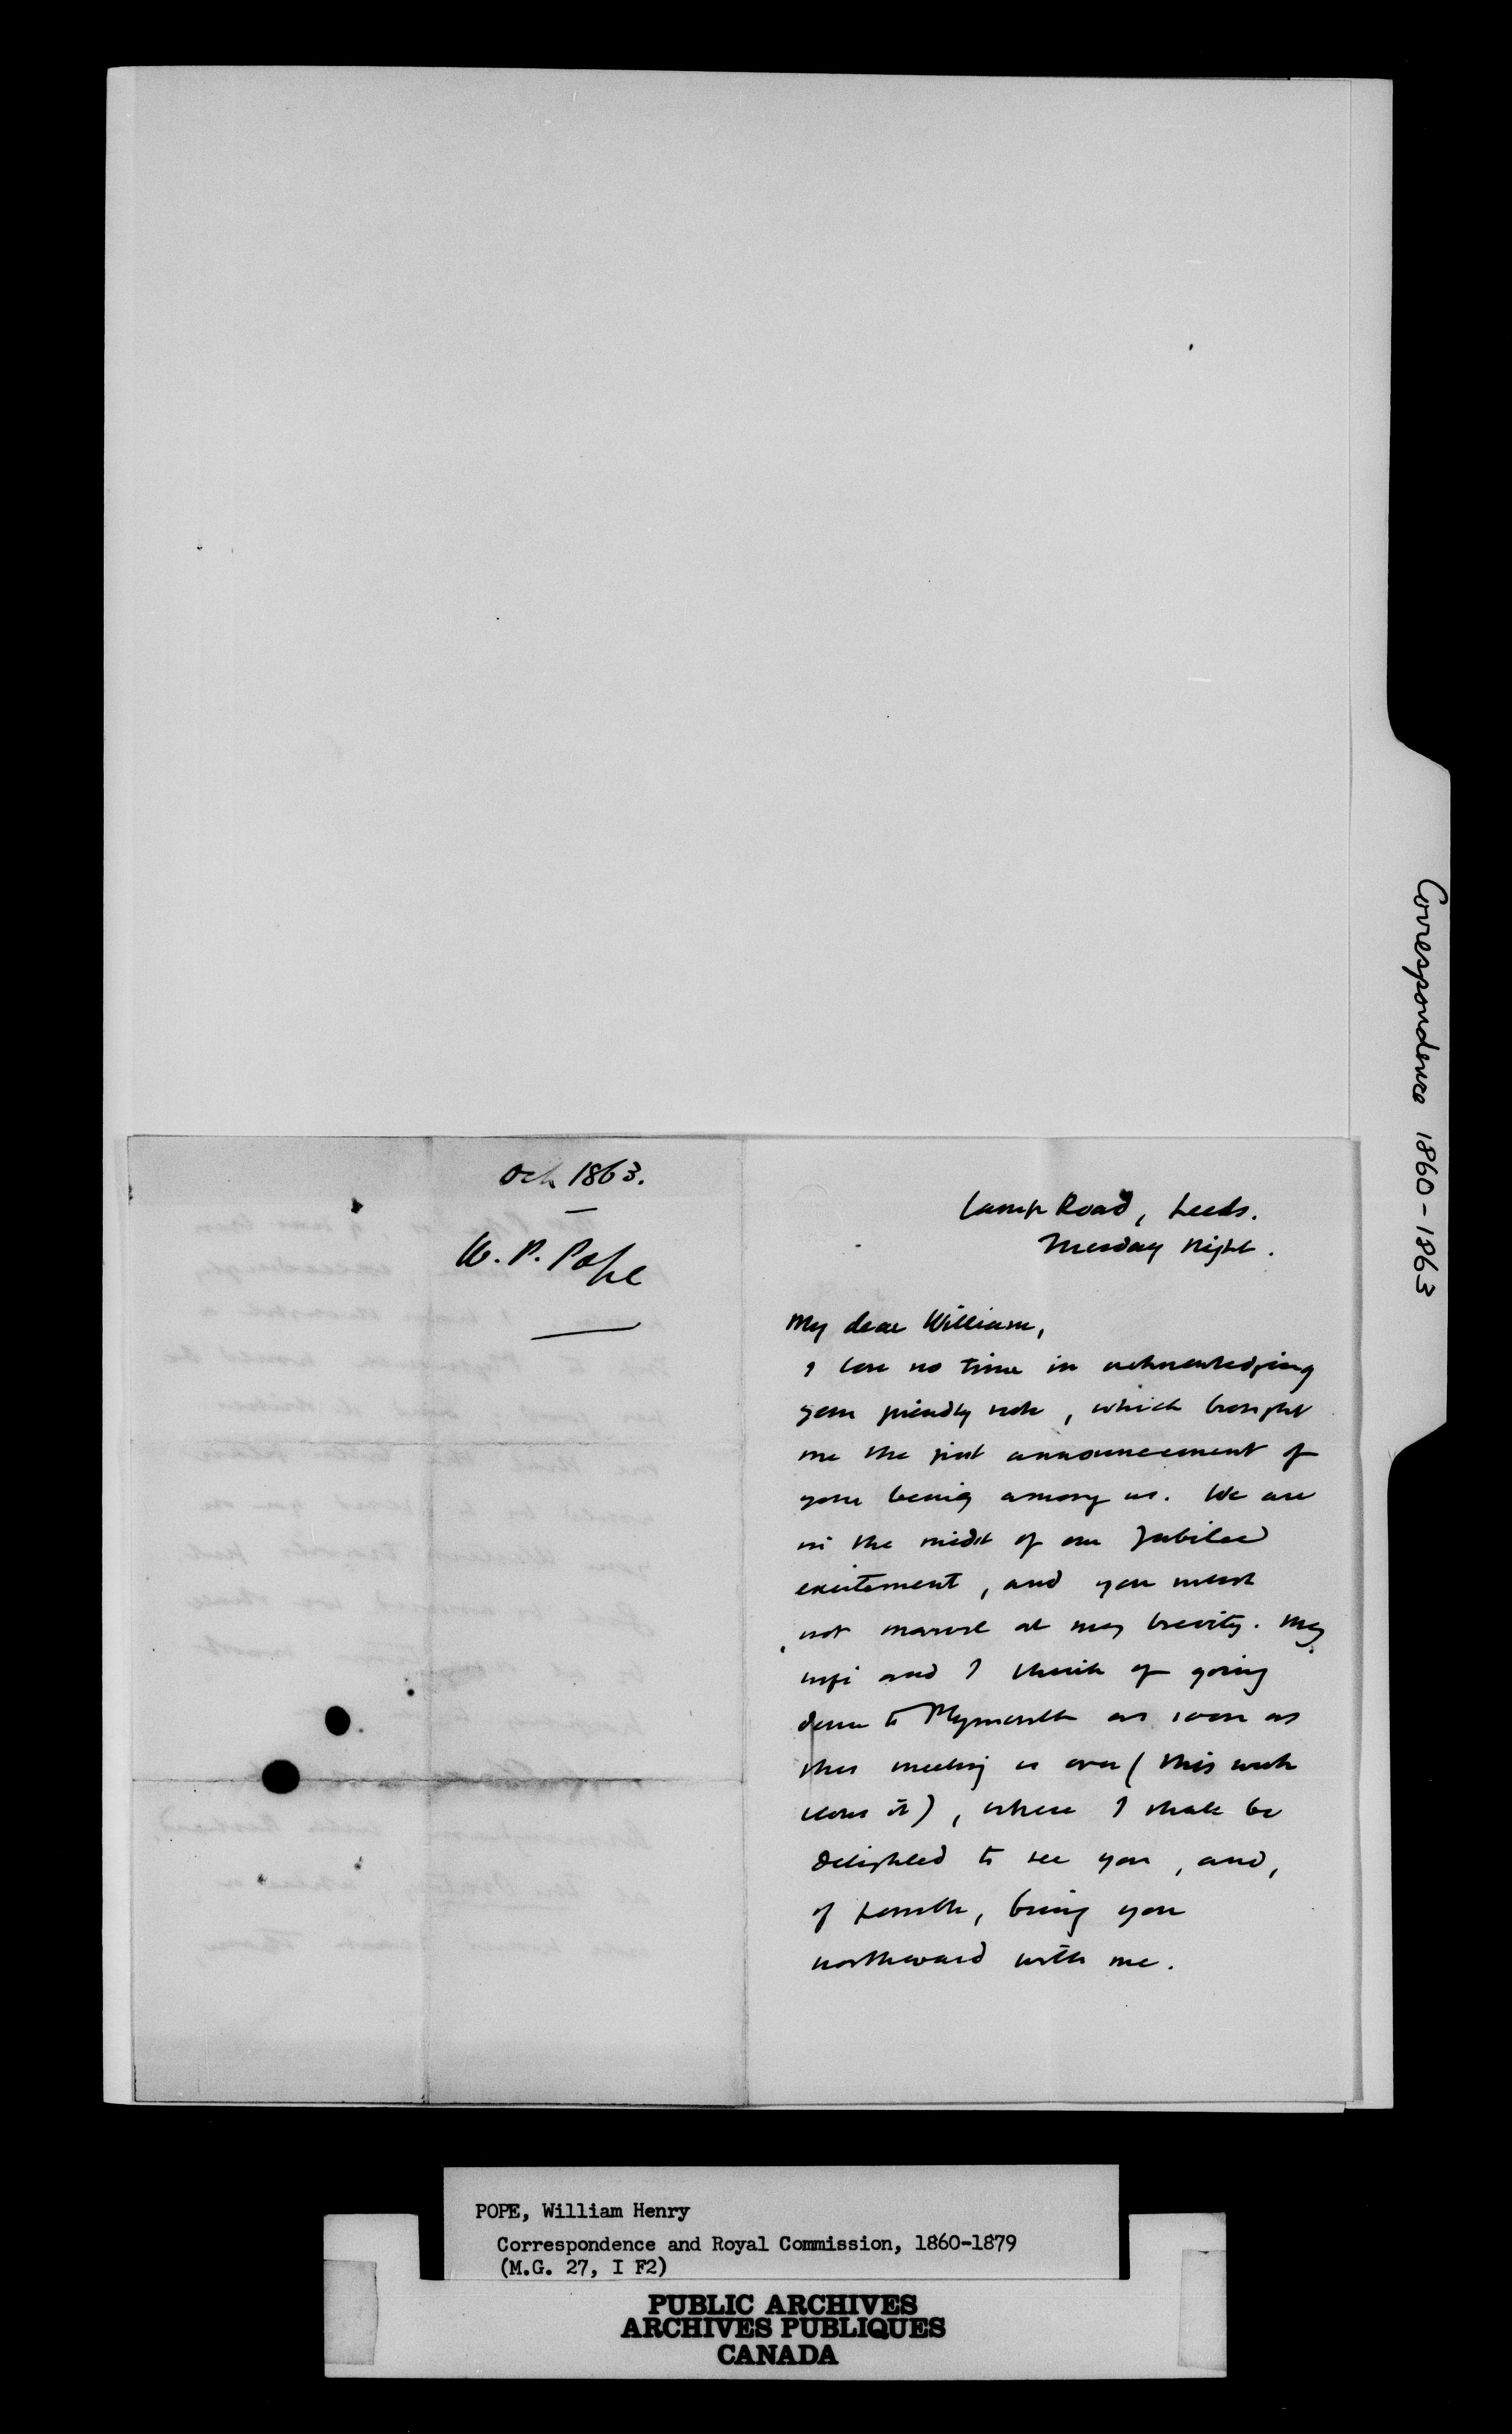 Oct 1863.
W. P. Pope
Camp Road, Leeds.
Tuesday Night.
My dear William,
I lose no time in acknowledging
your friendly note, which brought
me the first announcement of
your being among us. We are
in the midst of our Jubilee
excitement, and you must
not marvel at my brevity. My
wife and I think of going
down to Plymouth as soon as
this meeting is over (this week
closes it), where I shall be
delighted to see you, and,
if possible, bring you
northward with me.
Correspondence 1860-1863
POPE, William Henry
Correspondence and Royal Commission, 1860-1879
(M.G. 27, I F2)
PUBLIC ARCHIVES
ARCHIVES PUBLIQUES
CANADA